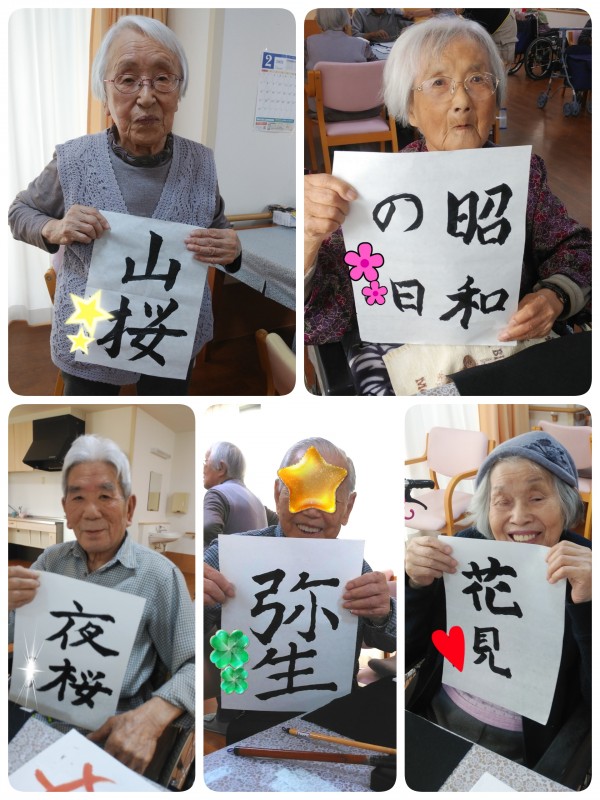 2
山
桜
昭和
の日
夜
桜
弥
生
花
見